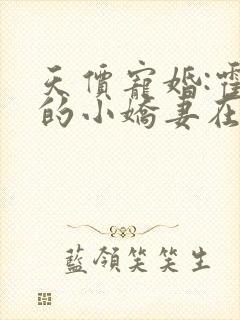 天價寵婚:霍
的小嬌妻在
藍領笑笑生